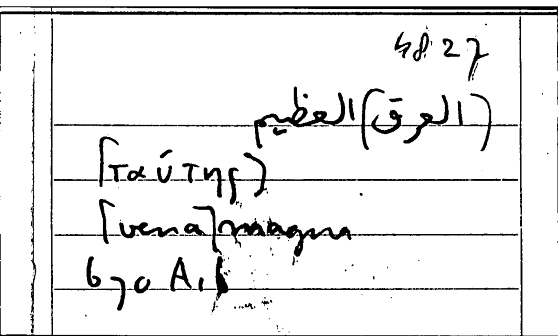 4827
(العرق) العظيم
[ταύτης]
[vena] magna
670 A,6